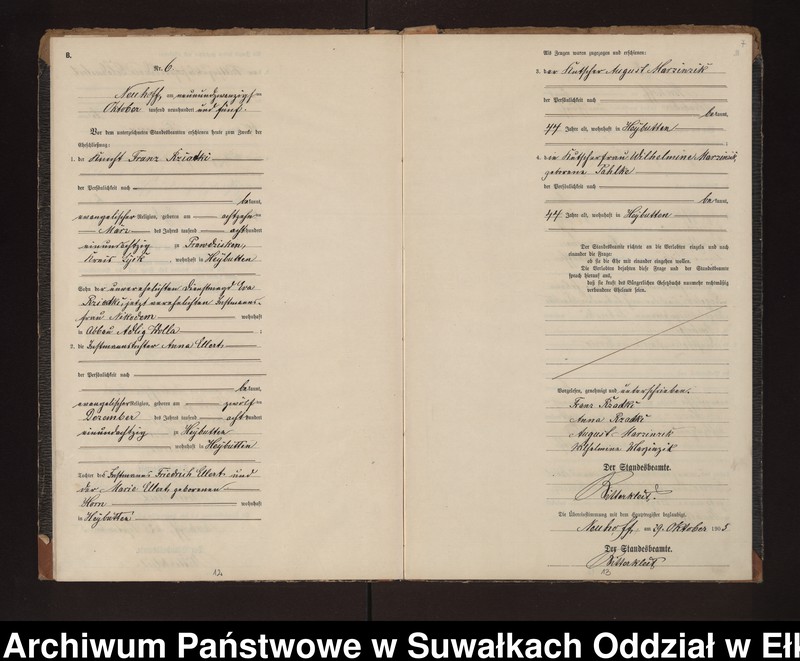 B.
Nr. 6
Neuhoff, am neunundzwanzigsten
Oktober tausend neunhundert und fünf.
Vor dem unterzeichneten Standesbeamten erschienen heute zum Zwecke der
Eheschließung:
1. der Knecht Franz Rziadki
der Persönlichkeit nach
bekannt,
evangelischer Religion, geboren am achtzehnten
März des Jahres tausend achthundert
einundachtzig zu Prawdzisken,
Kreis Lyck, wohnhaft in Heybutten
Sohn der unverehelichten Dienstmagd Eva
Rziadki, jetzt verehelichten Instmanns-
frau Nikodem wohnhaft
in Abbau Adlig Wolla ;
2. die Instmannstochter Anna Ellert
der Persönlichkeit nach
bekannt,
evangelischer Religion, geboren am zwölften
Dezember des Jahres tausend achthundert
einundachtzig zu Heybutten
wohnhaft in Heybutten
Tochter des Instmanns Friedrich Ellert und
der Marie Ellert geborenen
Horn wohnhaft
in Heybutten
12
Als Zeugen waren zugezogen und erschienen:
3. der Kutscher August Marzinzik
der Persönlichkeit nach
bekannt,
44 Jahre alt, wohnhaft in Heybutten
;
4. die Kutscherfrau Wilhelmine Marzinzik,
geborene Sahlke
der Persönlichkeit nach
bekannt,
44 Jahre alt, wohnhaft in Heybutten
Der Standesbeamte richtete an die Verlobten einzeln und nach
einander die Frage:
ob sie die Ehe mit einander eingehen wollen.
Die Verlobten bejahten diese Frage und der Standesbeamte
sprach hierauf aus,
daß sie kraft des Bürgerlichen Gesetzbuchs nunmehr rechtmäßig
verbundene Eheleute seien.
Vorgelesen, genehmigt und unterschrieben.
Franz Rzadki
Anna Rzadki
August Marzinzik
Wilhelmine Marzinzik
Der Standesbeamte.
Bitterkleit
Die Übereinstimmung mit dem Hauptregister beglaubigt.
Neuhoff, am 29. Oktober 1905.
Der Standesbeamte.
Bitterkleit
13
Archiwum Państwowe w Suwałkach Oddział w Ełk